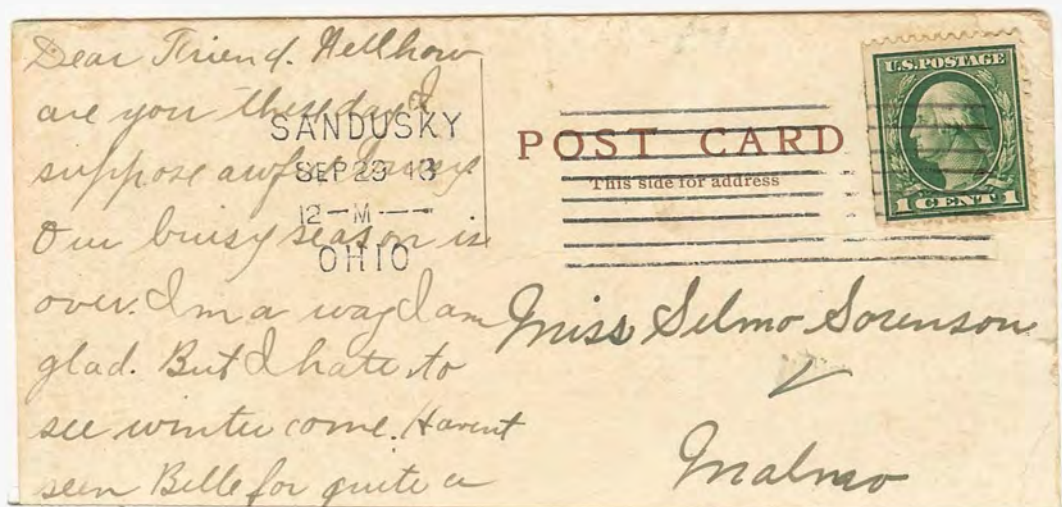 Dear Friend. Well how
are you these days I
suppose awful busy.
Our buisy season is
over. In a way I am
glad. But I hate to
see winter come. Havent
seen Belle for quite a
SANDUSKY
SEP 23 13
12 - M -
OHIO
POST CARD
This side for address
U.S. POSTAGE
1 CENT 1
Miss Selmo Sorenson
Malmo